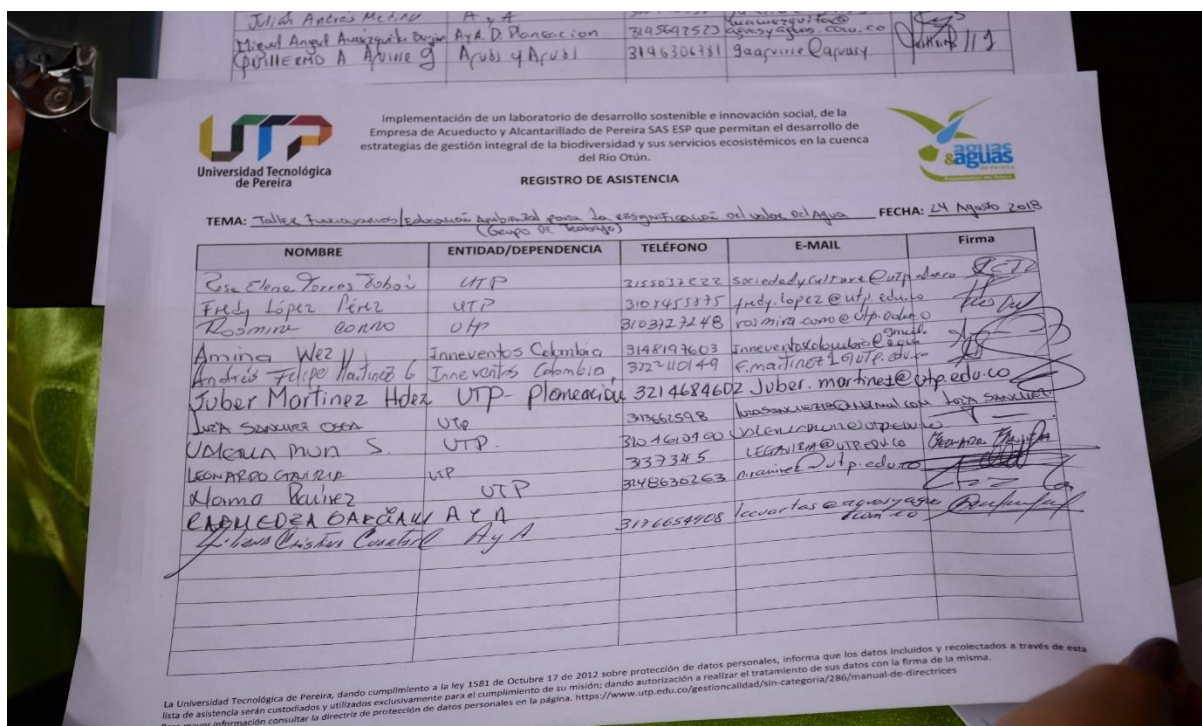 Julián Andres Medina A y A
Miguel Angel AyA. D. Planeacion 3145692523 aguasyaguas.com.co
GUILLERMO A Aguirre g Aguas y Aguas 3146306781 gaaguirre@aguasy.
UTP
Universidad Tecnológica
de Pereira
Implementación de un laboratorio de desarrollo sostenible e innovación social, de la
Empresa de Acueducto y Alcantarillado de Pereira SAS ESP que permitan el desarrollo de
estrategias de gestión integral de la biodiversidad y sus servicios ecosistémicos en la cuenca
del Río Otún.
aguas
&aguas
de Pereira
REGISTRO DE ASISTENCIA
TEMA: Taller Funcionarios/Educación Ambiental para la resignificación del valor del Agua FECHA: 24 Agosto 2018
(Grupo de trabajo)
NOMBRE ENTIDAD/DEPENDENCIA TELÉFONO E-MAIL Firma
Rosa Elena Torres Tobón UTP sociedadycultura@utp.edu.co
Fredy López Pérez UTP fredy.lopez@utp.edu.co
UTP 3103727248
Amina Wez Inneventos Colombia 3148197603
Andrés Felipe Martinez G Inneventos Colombia f.martinez1@utp.edu.co
Juber Martinez Hdez UTP- Planeación 3214684602 Juber.martinez@utp.edu.co
LUZA SANCHEZ OSSA UTP LUZA SANCHEZ
UTP.
LEONARDO GAVIRIA UTP 3137345 LEGAVIRIA@UTP.EDU.CO
Norma Ramirez UTP 3148630263 nramirez@utp.edu.co
GARCIA AYA
Liliana Cristina AyA 3176654908
La Universidad Tecnológica de Pereira, dando cumplimiento a la ley 1581 de Octubre 17 de 2012 sobre protección de datos personales, informa que los datos incluidos y recolectados a través de esta
lista de asistencia serán custodiados y utilizados exclusivamente para el cumplimiento de su misión; dando autorización a realizar el tratamiento de sus datos con la firma de la misma.
Para mayor información consultar la directriz de protección de datos personales en la página. https://www.utp.edu.co/gestioncalidad/sin-categoria/286/manual-de-directrices